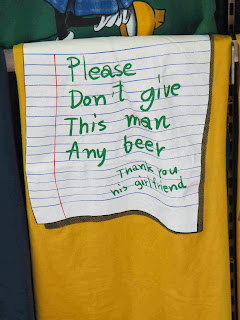 Please
Don't give
This man
Any beer
Thank you
his girlfriend